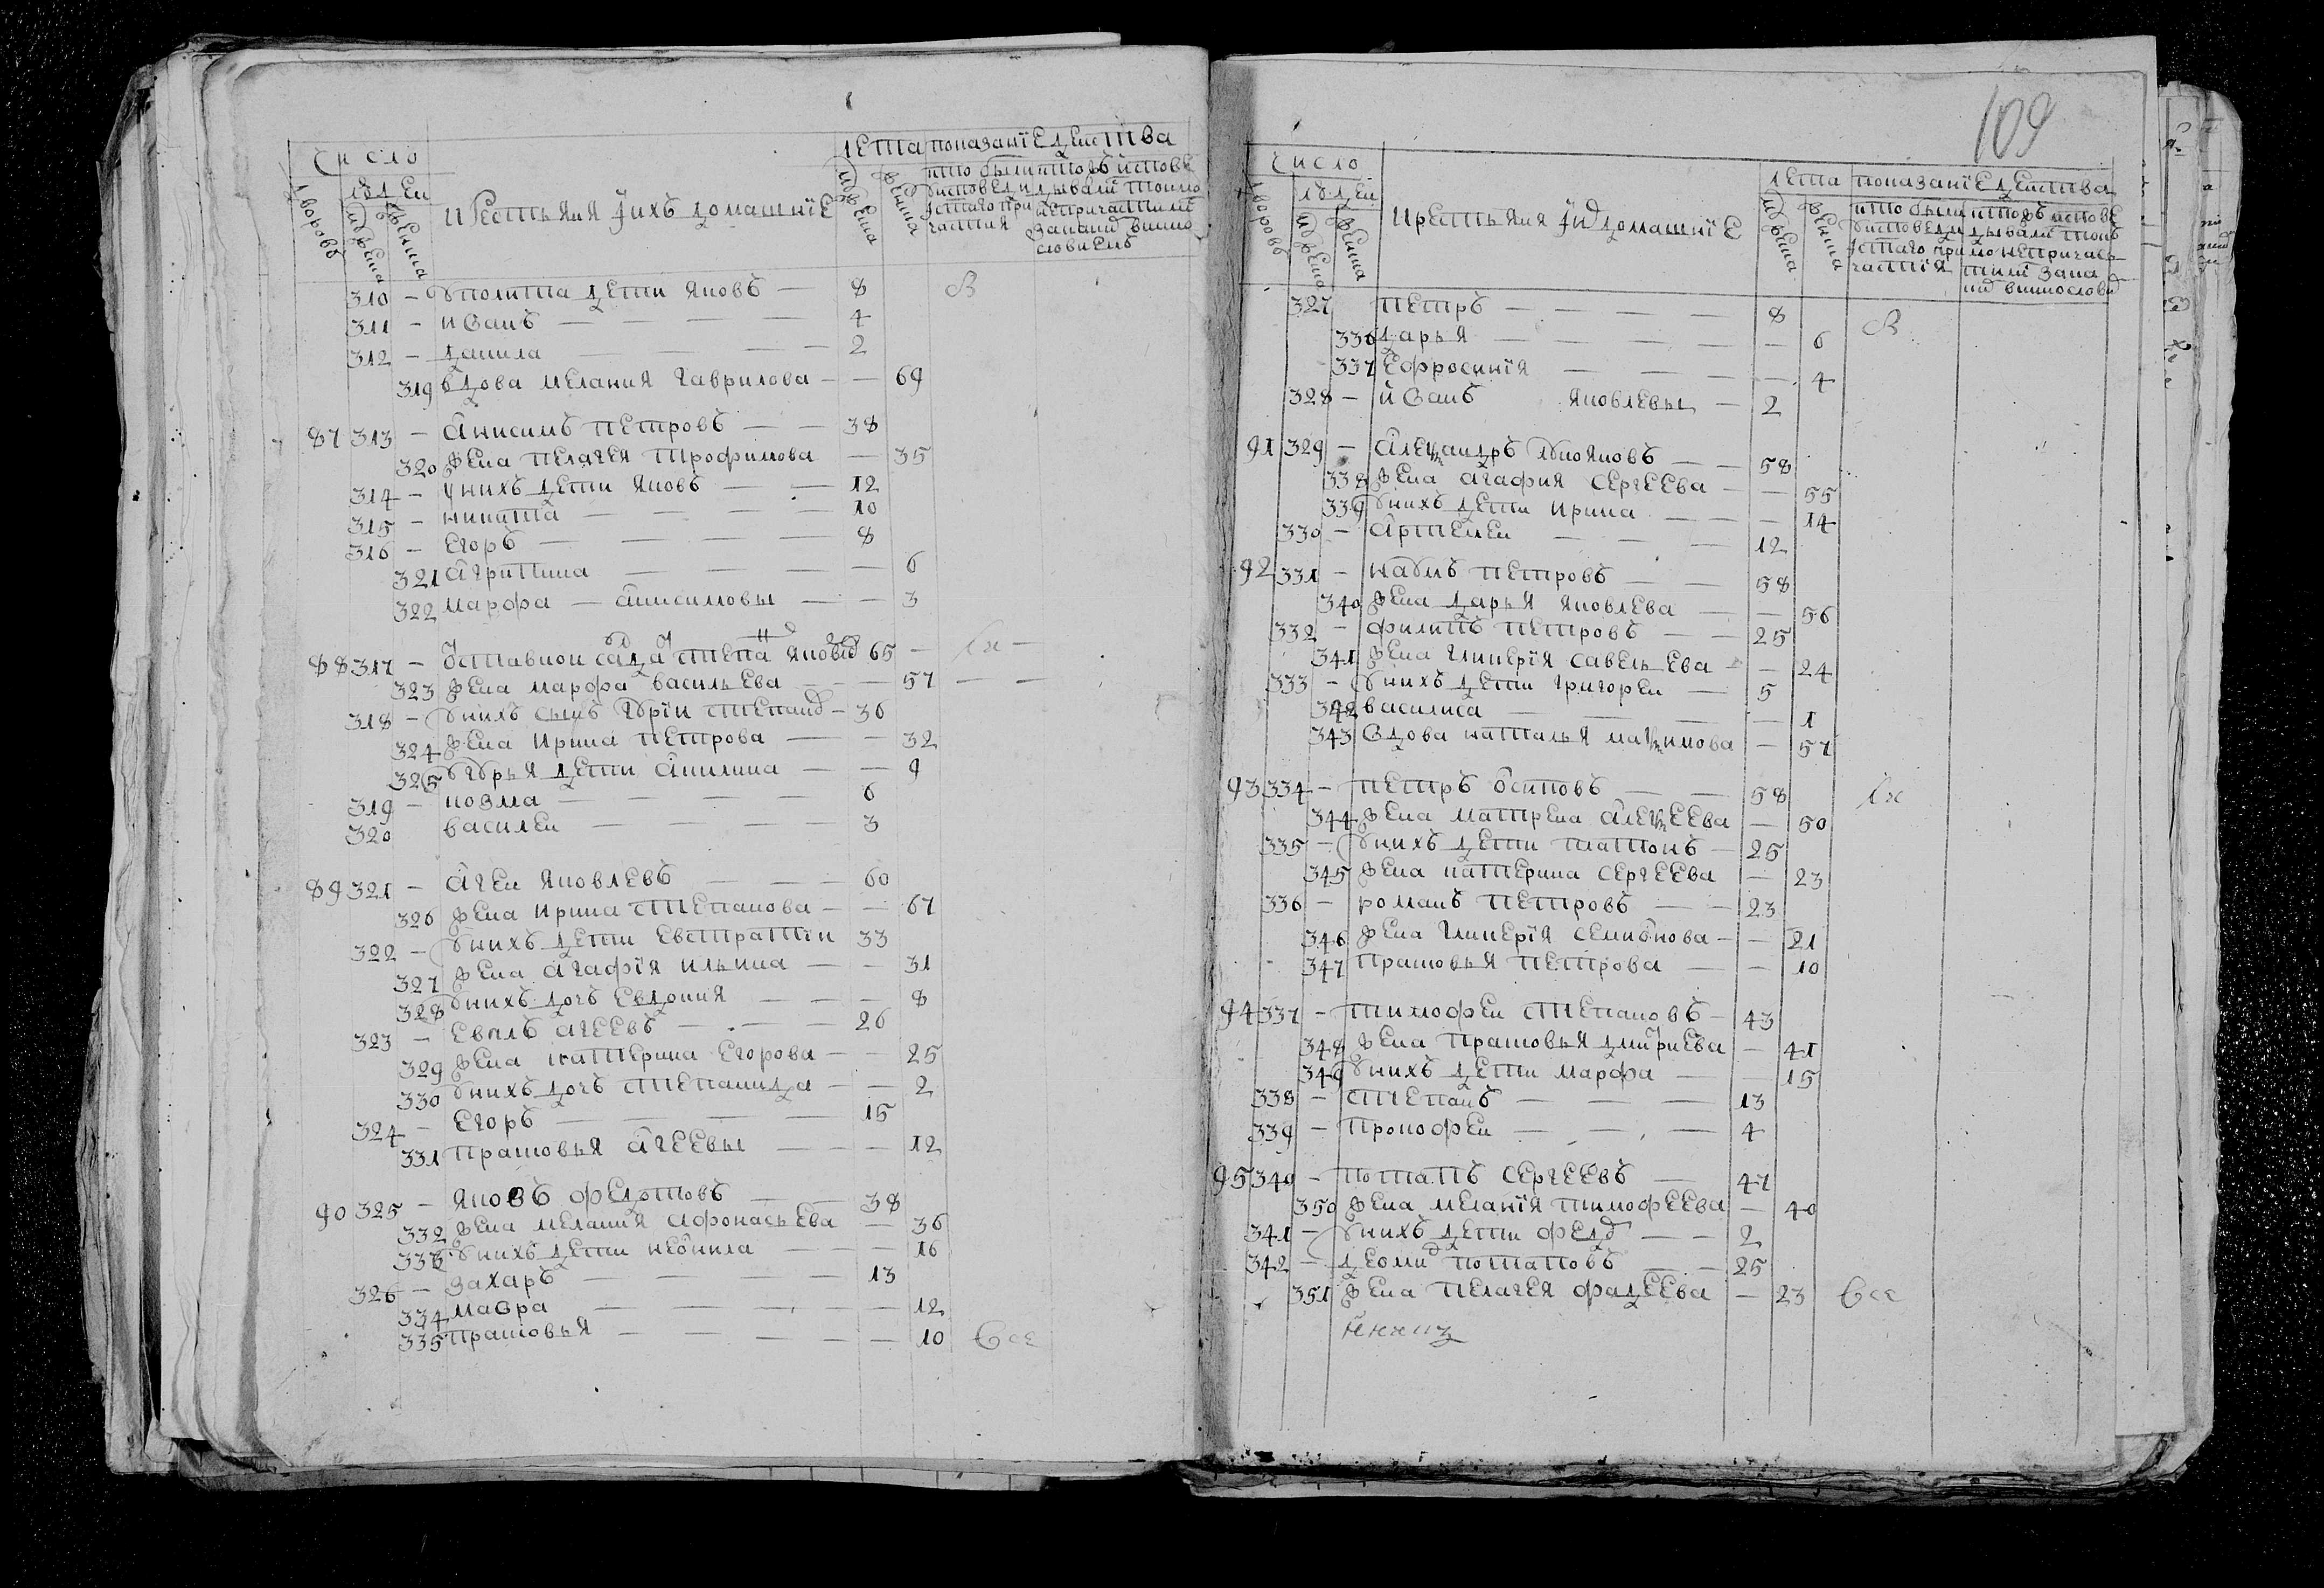 число
людеи
дворовъ
мужеска
женска
крестьяня и ихъ домашние
лета показание действа
310 — у полита дети яковъ — 8
311 — иванъ — 4
312 — данила — 2
319 вдова мелания гаврилова — 69
87 313 — анисимъ петровъ — 38
320 жена пелагея трофимова — 35
314 — у нихъ дети яковъ — 12
315 — никита — 10
316 — егоръ — 8
321 агрипина — 6
322 марфа — анисимовы — 3
88 317 — 65
323 жена марфа васильева — 57
318 — у нихъ сынъ юрiи степанов — 36
324 жена ирина петрова — 32
325 у юрья дети акилина — 9
319 — козма — 6
320 василеи — 3
89 321 — агеи яковлевъ — 60
326 жена ирина степанова — 67
322 — у нихъ дети евстратiи 33
327 жена агафiя ильина — 31
328 у нихъ дочь евдокия — 8
323 — агеевъ — 26
329 жена катерина егорова — 25
330 у нихъ дочь степанида — 2
324 — егоръ — 15
331 прасковья агеевы — 12
90 325 — яковъ федотовъ — 38
332 жена мелания афонасьева — 36
333 у нихъ дети неонила — 16
326 — захаръ — 13
334 мавра — 12
335 прасковья — 10 все
109
число
людеи
дворовъ
мужеска
женска
крестьяня и их домашнiе
лета показанiе действа
327 петръ — 8
336 дарья — 6
337 ефросинiя — 4
328 — иванъ яковлевы — 2
91 329 — александръ лукояновъ — 58
338 жена агафия сергеева — 55
339 у нихъ дети ирина — 14
330 — артемеи — 12
92 331 — наумъ петровъ — 58
340 жена дарья яковлева — 56
332 — филипъ петровъ — 25
341 жена гликерiя савельева — 24
333 — у нихъ дети григореи — 5
342 василиса — 1
343 вдова наталья максимова — 57
93 334 — петръ осиповъ — 58
344 жена матрена алексеева — 50
335 — у нихъ дети платонъ — 25
345 жена катерина сергеева — 23
336 — романъ петровъ — 23
346 жена гликерiя семионова — 21
347 прасковья петрова — 10
94 337 — тимофеи степановъ — 43
348 жена прасковья дмитриева — 41
349 у нихъ дети марфа — 15
338 — степанъ — 13
339 — прокофеи — 4
95 340 — потапъ сергеевъ — 47
350 жена меланiя тимофеева — 40
341 — у нихъ дети фед — 2
342 — деомид потаповъ — 25
351 жена пелагея фадеева — 23 все